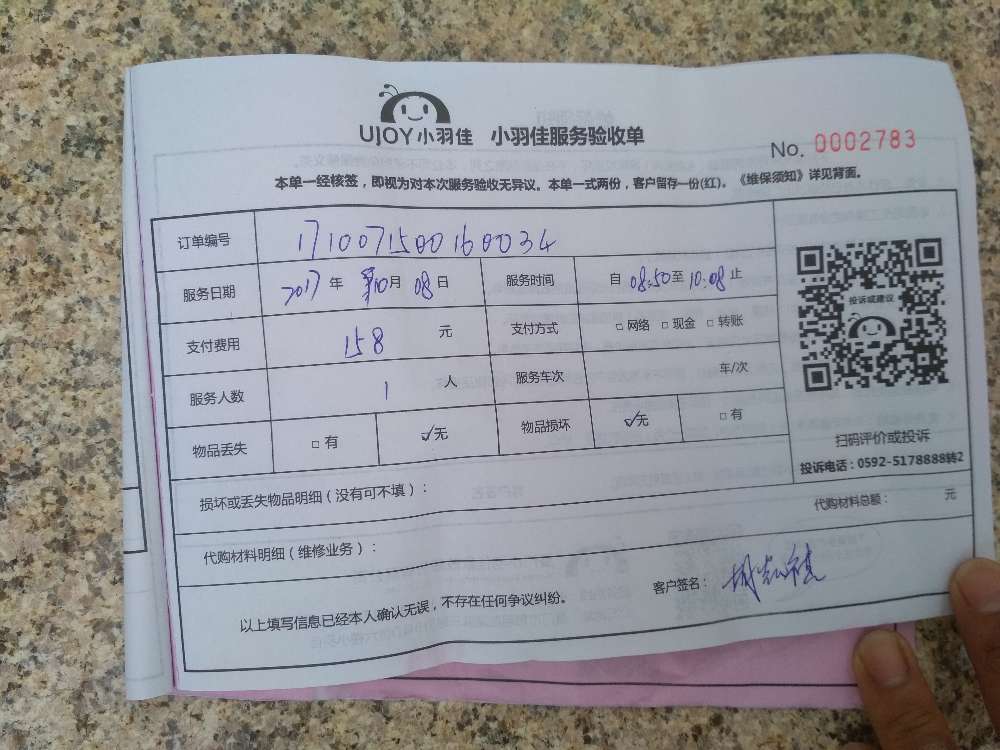 UJOY小羽佳 小羽佳服务验收单
No. 0002783
本单一经核签，即视为对本次服务验收无异议。本单一式两份，客户留存一份(红)。《维保须知》详见背面。
订单编号 1710071500160034
服务日期 2017 年 10月 08 日 服务时间 自 08:50 至 10:08 止
支付费用 158 元 支付方式 □ 网络 □ 现金 □ 转账
服务人数 1 人 服务车次 车/次
物品丢失 □ 有 ✓无 物品损坏 ✓无 □ 有
投诉或建议
扫码评价或投诉
投诉电话：0592-5178888转2
损坏或丢失物品明细（没有可不填）：
代购材料明细（维修业务）： 代购材料总额： 元
以上填写信息已经本人确认无误，不存在任何争议纠纷。 客户签名：